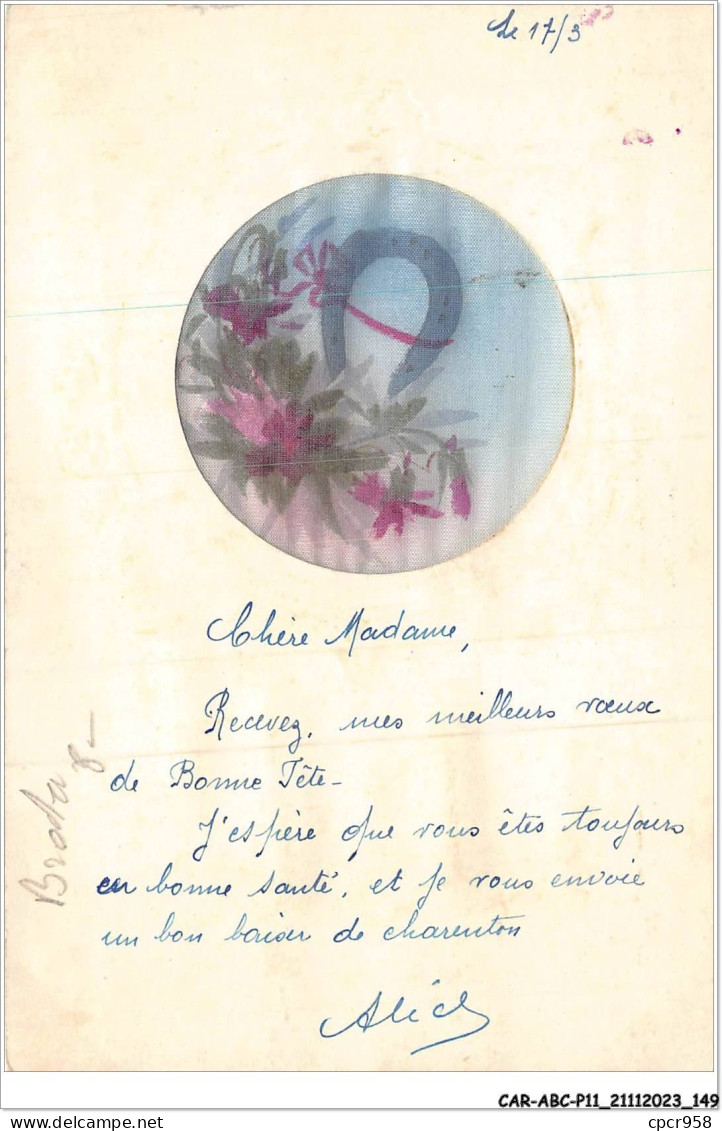 Le 17/3
Chère Madame,
Recevez, mes meilleurs vœux
de Bonne Fête-
J'espère que vous êtes toujours
en bonne santé, et je vous envoie
un bon baiser de charenton
Alice
CAR-ABC-P11_21112023_149
cpcr958